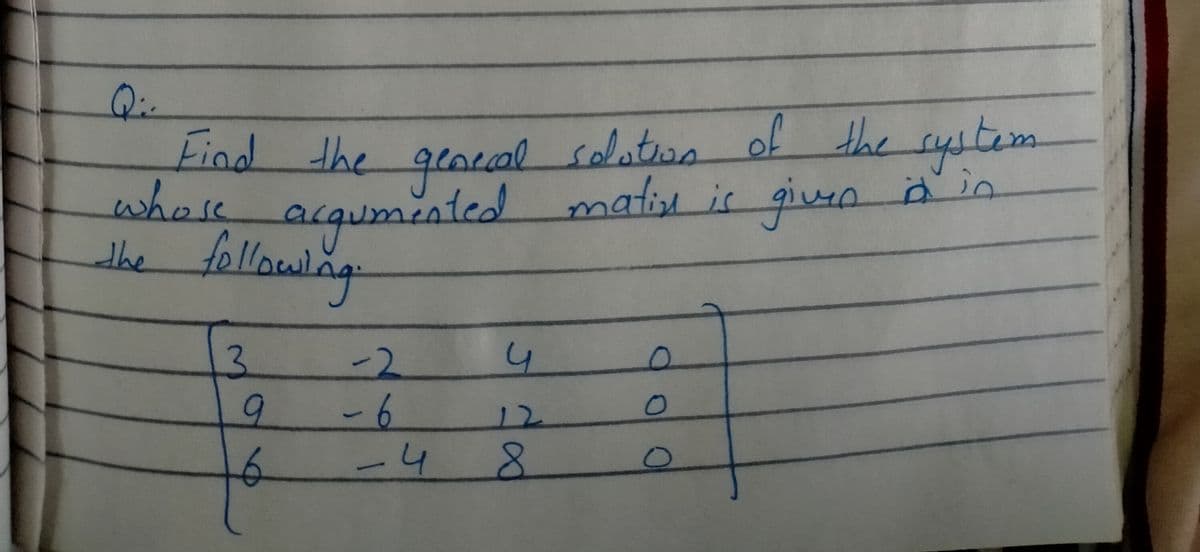 Q:.
Find the general solution of the system
whose acqumented matix is given in
the following.
3 -2 4 0
9 -6 12 0
6 -4 8 0